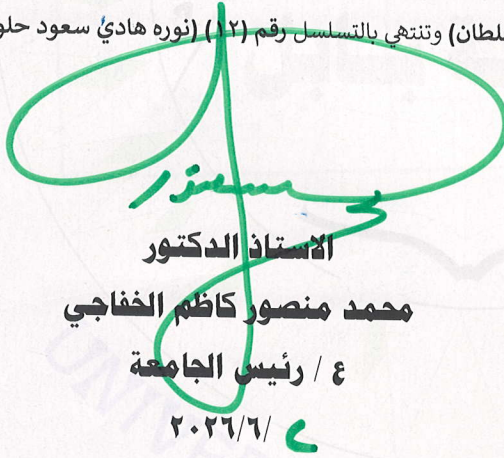 لطان) وتنتهي بالتسلسل رقم (١٢) (نوره هادي سعود حلو
الاستاذ الدكتور
محمد منصور كاظم الخفاجي
ع / رئيس الجامعة
/٢٠٢٦/٦